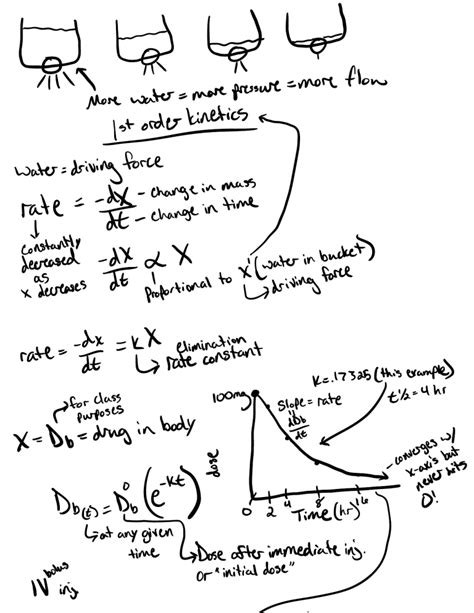 More water = more pressure = more flow
1st order kinetics
water = driving force
rate = -dX/dt
- change in mass
- change in time
constantly
decreased
as
x decreases
-dX/dt ∝ X
proportional to X' (water in bucket)
driving force
rate = -dx/dt = kX
elimination
rate constant
for class
purposes
X = Db = drug in body
Db(t) = Db⁰ (e^-kt)
at any given
time
Dose after immediate inj.
or "initial dose"
IV bolus
inj.
K=.17325 (this example)
t½ = 4 hr
100mg
slope = rate
dDb/dt
dose
- converges w/
x-axis but
never hits
0!
0 2 4 8 16
Time (hr)